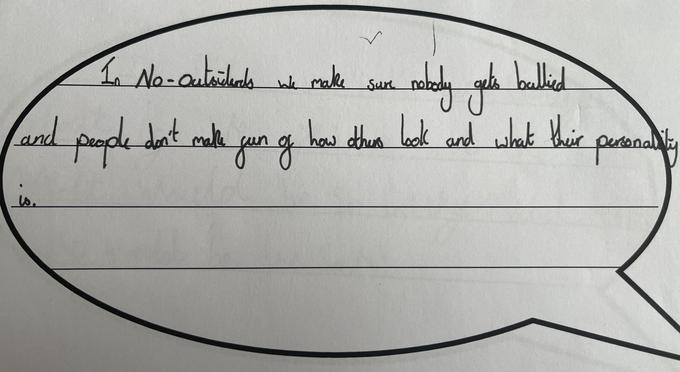 In No-outsiders we make sure nobody gets bullied
and people don't make fun of how others look and what their personality
is.